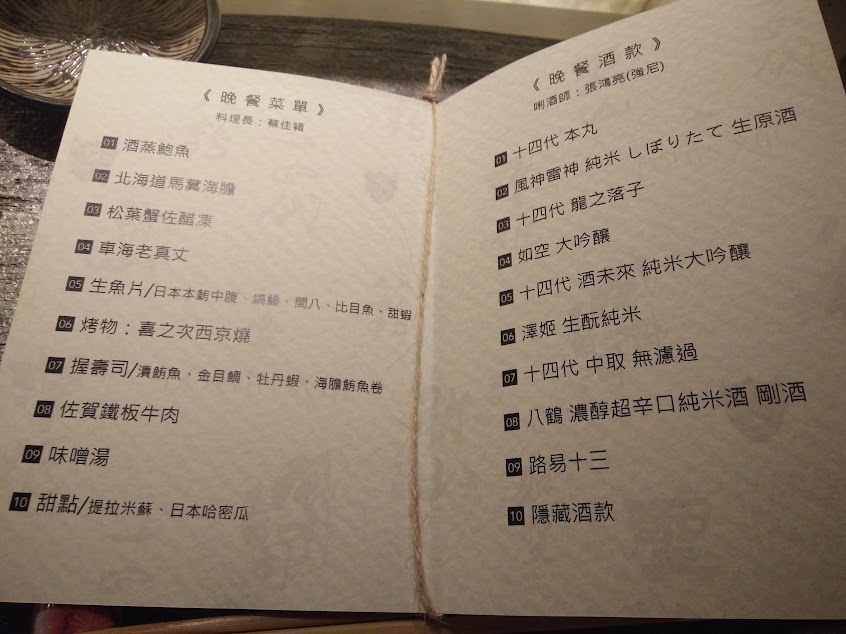 《晚餐菜單》
料理長：蔡佳穎
01 酒蒸鮑魚
02 北海道馬糞海膽
03 松葉蟹佐醋凍
04 車海老真丈
05 生魚片/日本本鮪中腹、縞鰺、間八、比目魚、甜蝦
06 烤物：喜之次西京燒
07 握壽司/漬鮪魚、金目鯛、牡丹蝦、海膽鮪魚卷
08 佐賀鐵板牛肉
09 味噌湯
10 甜點/提拉米蘇、日本哈密瓜
《晚餐酒款》
唎酒師：張鴻亮(強尼)
01 十四代 本丸
02 風神雷神 純米 しぼりたて 生原酒
03 十四代 龍之落子
04 如空 大吟釀
05 十四代 酒未來 純米大吟釀
06 澤姬 生酛純米
07 十四代 中取 無濾過
08 八鶴 濃醇超辛口純米酒 剛酒
09 路易十三
10 隱藏酒款